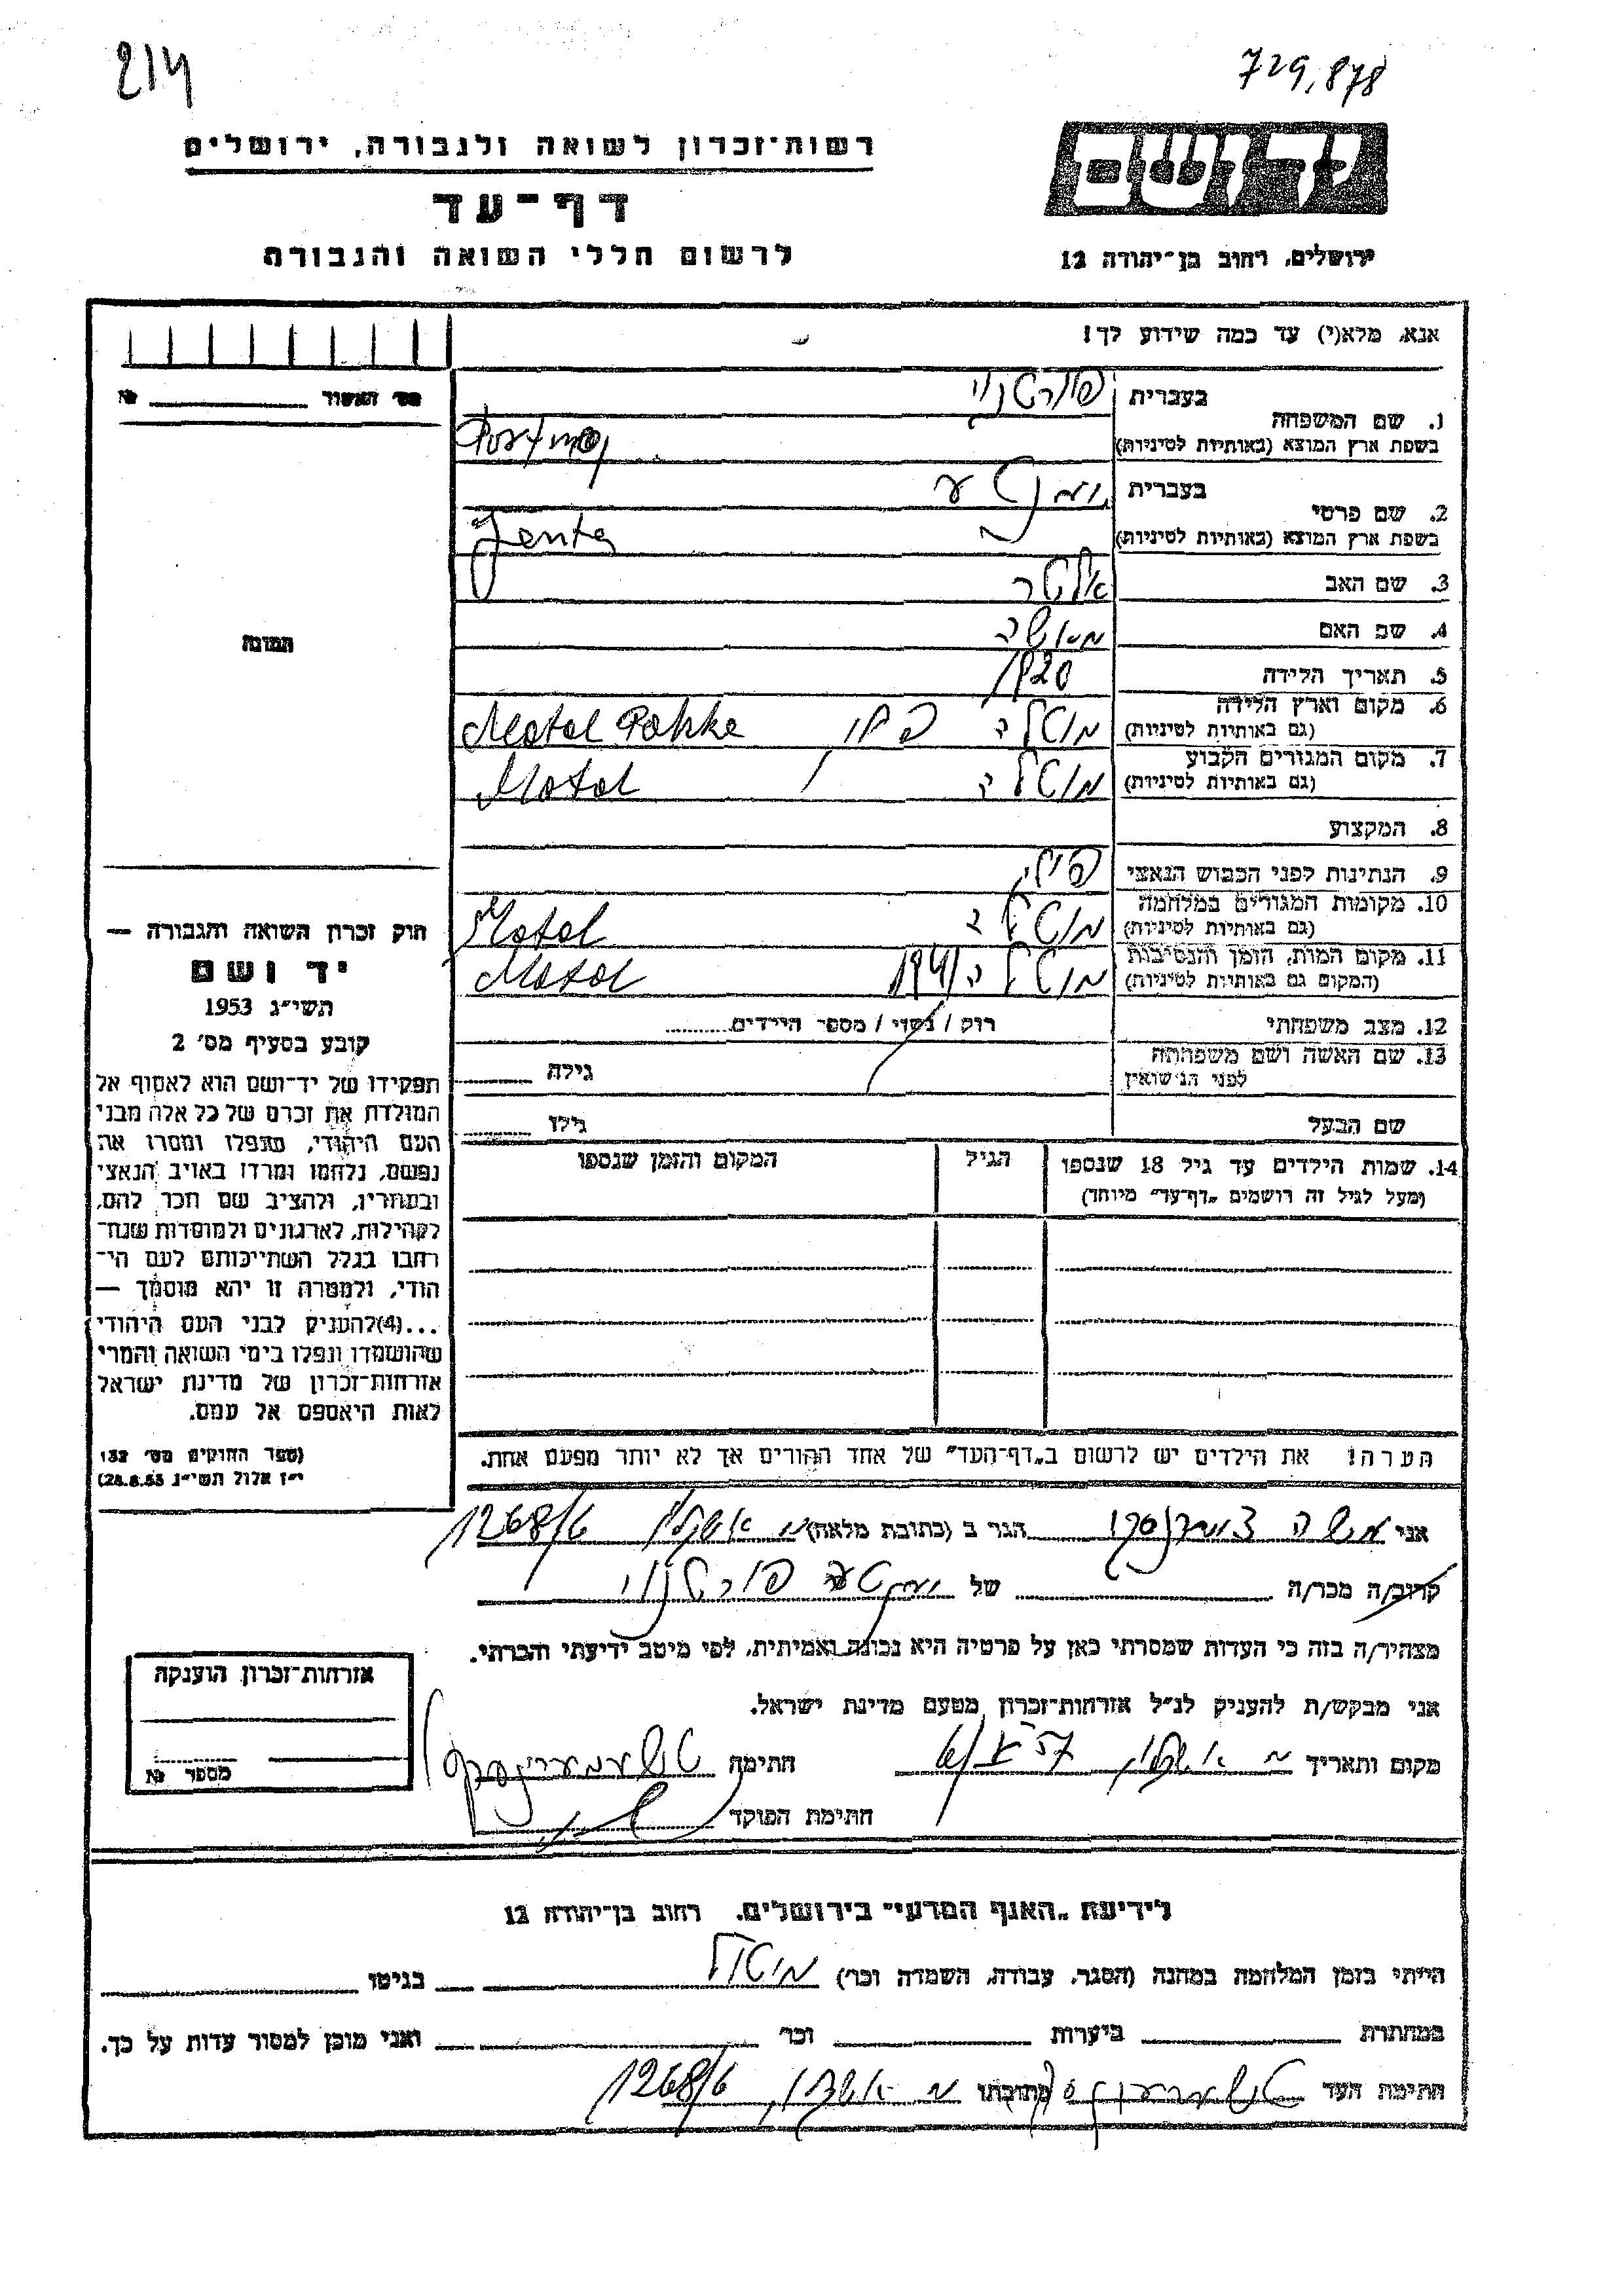 214
729,878
רשות־זכרון לשואה ולגבורה, ירושלים
דף־עד
לרשום חללי השואה והגבורה
יד ושם
ירושלים, רחוב בן־יהודה 12
אנא, מלא(י) עד כמה שידוע לך!
מס' האשור № 
1. שם המשפחה
בעברית פורטנוי
בשפת ארץ המוצא (באותיות לטיניות) Portnoj
2. שם פרטי
בעברית
בשפת ארץ המוצא (באותיות לטיניות) Jenta
3. שם האב אלטר
4. שם האם
5. תאריך הלידה 1920
6. מקום וארץ הלידה
(גם באותיות לטיניות) מוטלה Motol
7. מקום המגורים הקבוע
(גם באותיות לטיניות) מוטלה Motol
8. המקצוע
9. הנתינות לפני הכבוש הנאצי
10. מקומות המגורים במלחמה
(גם באותיות לטיניות) מוטלה Motol
11. מקום המות, הזמן והנסיבות
(המקום גם באותיות לטיניות) מוטלה 1941 Motol
12. מצב משפחתי רווק / נשוי / מספר הילדים
13. שם האשה ושם משפחתה
לפני הנישואין
גילה
שם הבעל גילו
14. שמות הילדים עד גיל 18 שנספו
(מעל לגיל זה רושמים „דף־עד״ מיוחד)
הגיל
המקום והזמן שנספו
הערה! את הילדים יש לרשום ב„דף־העד״ של אחד ההורים אך לא יותר מפעם אחת.
תמונה
חוק זכרון השואה והגבורה —
יד ושם
תשי״ג 1953
קובע בסעיף מס׳ 2
תפקידו של יד־ושם הוא לאסוף אל
המולדת את זכרם של כל אלה מבני
העם היהודי, שנפלו ומסרו את
נפשם, נלחמו ומרדו באויב הנאצי
ובעוזריו, ולהציב שם וזכר להם,
לקהילות, לארגונים ולמוסדות שנח־
רבו בגלל השתייכותם לעם הי־
הודי, ולמטרה זו יהא מוסמך —
...(4)להעניק לבני העם היהודי
שהושמדו ונפלו בימי השואה והמרי
אזרחות־זכרון של מדינת ישראל
לאות היאספם אל עמם.
(ספר החוקים מס׳ 132
י״ז אלול תשי״ג 28.8.53)
אני משה הגר ב (כתובת מלאה) אשקלון 1268/6
קרוב/ה מכר/ה של יענטע פורטנוי
מצהיר/ה בזה כי העדות שמסרתי כאן על פרטיה היא נכונה ואמיתית, לפי מיטב ידיעתי והכרתי.
אני מבקש/ת להעניק לנ״ל אזרחות־זכרון מטעם מדינת ישראל.
מקום ותאריך אשקלון חתימה
חתימת הפוקד
אזרחות־זכרון הוענקה
מספר №
לידיעת „האגף המדעי״ בירושלים, רחוב בן־יהודה 12
הייתי בזמן המלחמה במחנה (הסגר, עבודה, השמדה וכו׳) מוטול בגיטו
במחתרת ביערות וכו׳ ואני מוכן למסור עדות על כך.
חתימת העד כתובתו אשקלון 1268/6